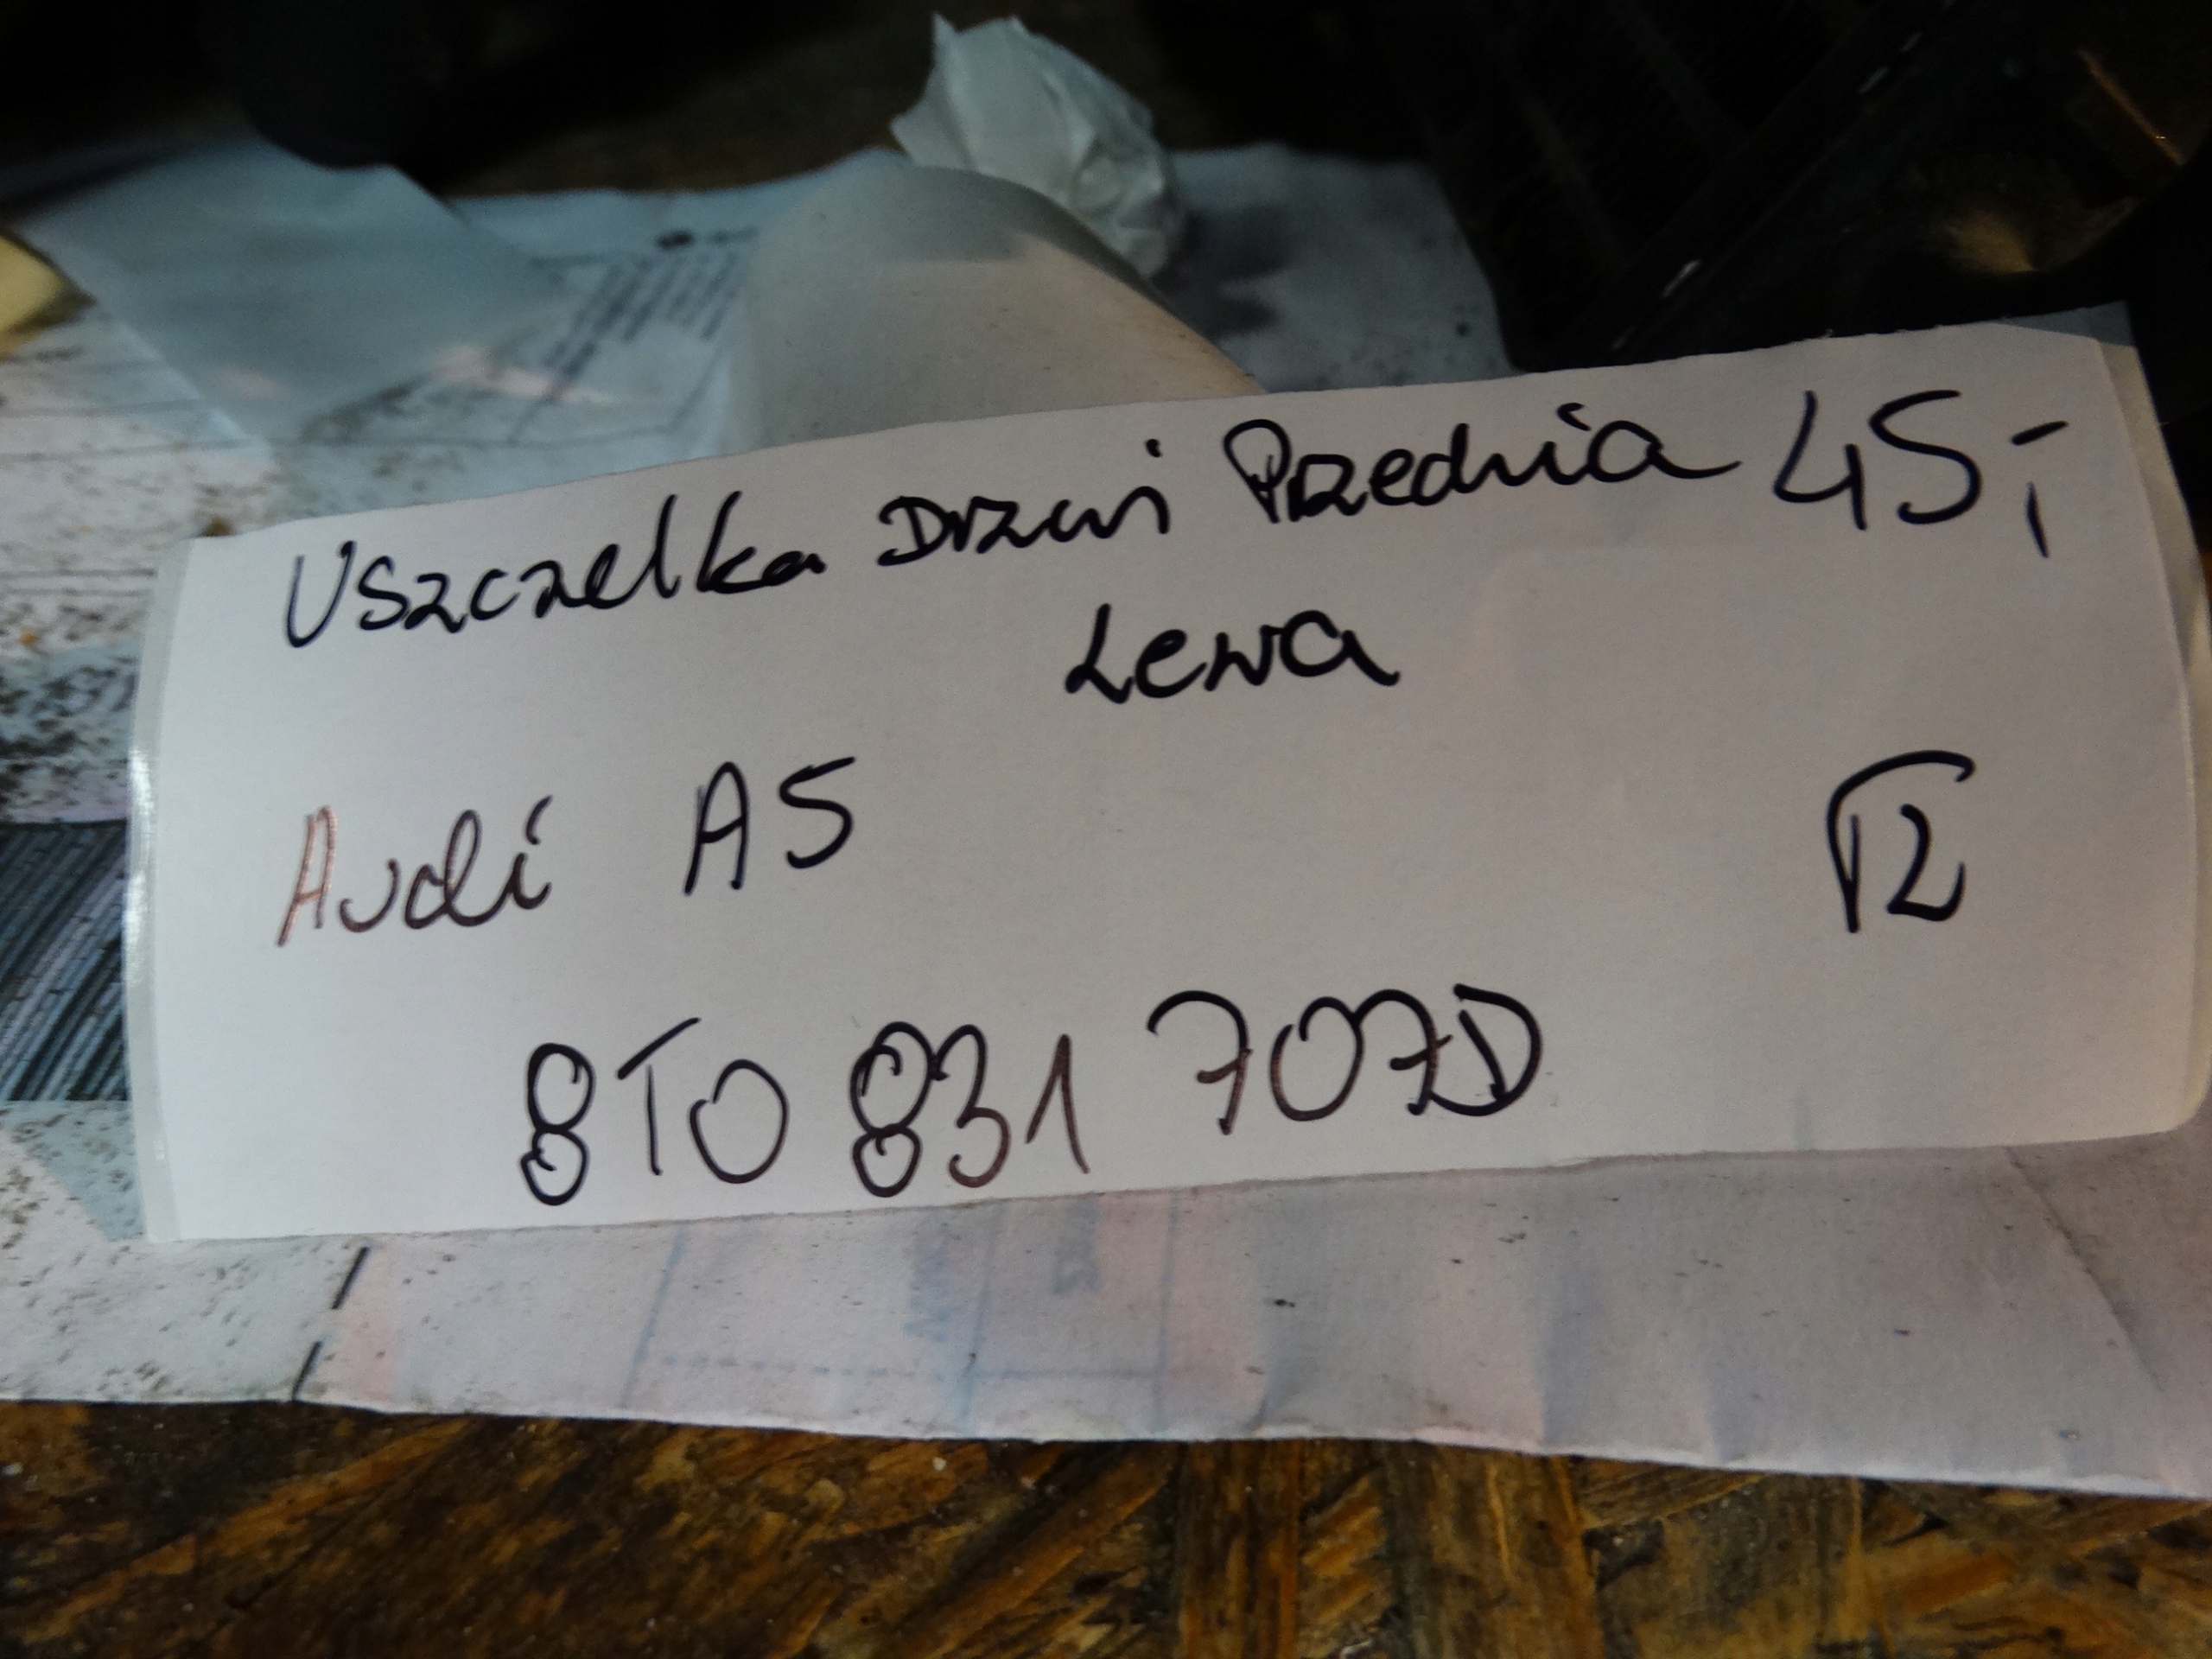 Uszczelka Drzwi Przednia 45,-
Lewa
Audi A5
8T0 831 707D